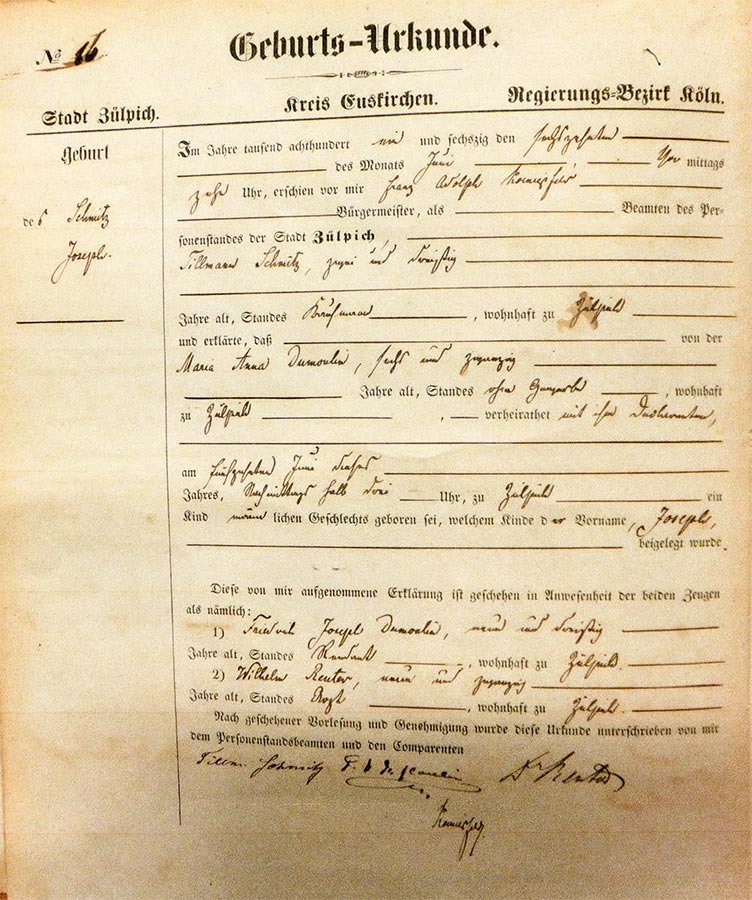 No 16
Geburts-Urkunde.
Stadt Zülpich.
Kreis Euskirchen.
Regierungs-Bezirk Köln.
Geburt
des Schmitz
Joseph.
Im Jahre tausend achthundert ein und sechszig den sechszehnten
des Monats Juni Vor mittags
zehn Uhr, erschien vor mir Franz Adolph
Bürgermeister, als Beamten des Per-
sonenstandes der Stadt Zülpich,
Tillmann Schmitz, zwei und dreißig
Jahre alt, Standes Kaufmann, wohnhaft zu Zülpich
und erklärte, daß von der
Maria Anna Dumoulin, sechs und zwanzig
Jahre alt, Standes ohne Gewerbe, wohnhaft
zu Zülpich, verheirathet mit ihm Declaranten,
am fünfzehnten Juni dieses
Jahres, Nachmittags halb drei Uhr, zu Zülpich ein
Kind männlichen Geschlechts geboren sei, welchem Kinde der Vorname, Joseph,
beigelegt wurde.
Diese von mir aufgenommene Erklärung ist geschehen in Anwesenheit der beiden Zeugen
als nämlich:
1) Joseph Dumoulin, neun und dreißig
Jahre alt, Standes Rendant, wohnhaft zu Zülpich.
2) Wilhelm Reuter, neun und zwanzig
Jahre alt, Standes Arzt, wohnhaft zu Zülpich.
Nach geschehener Vorlesung und Genehmigung wurde diese Urkunde unterschrieben von mir
dem Personenstandsbeamten und den Comparenten
Tillm Schmitz Dr Reuter